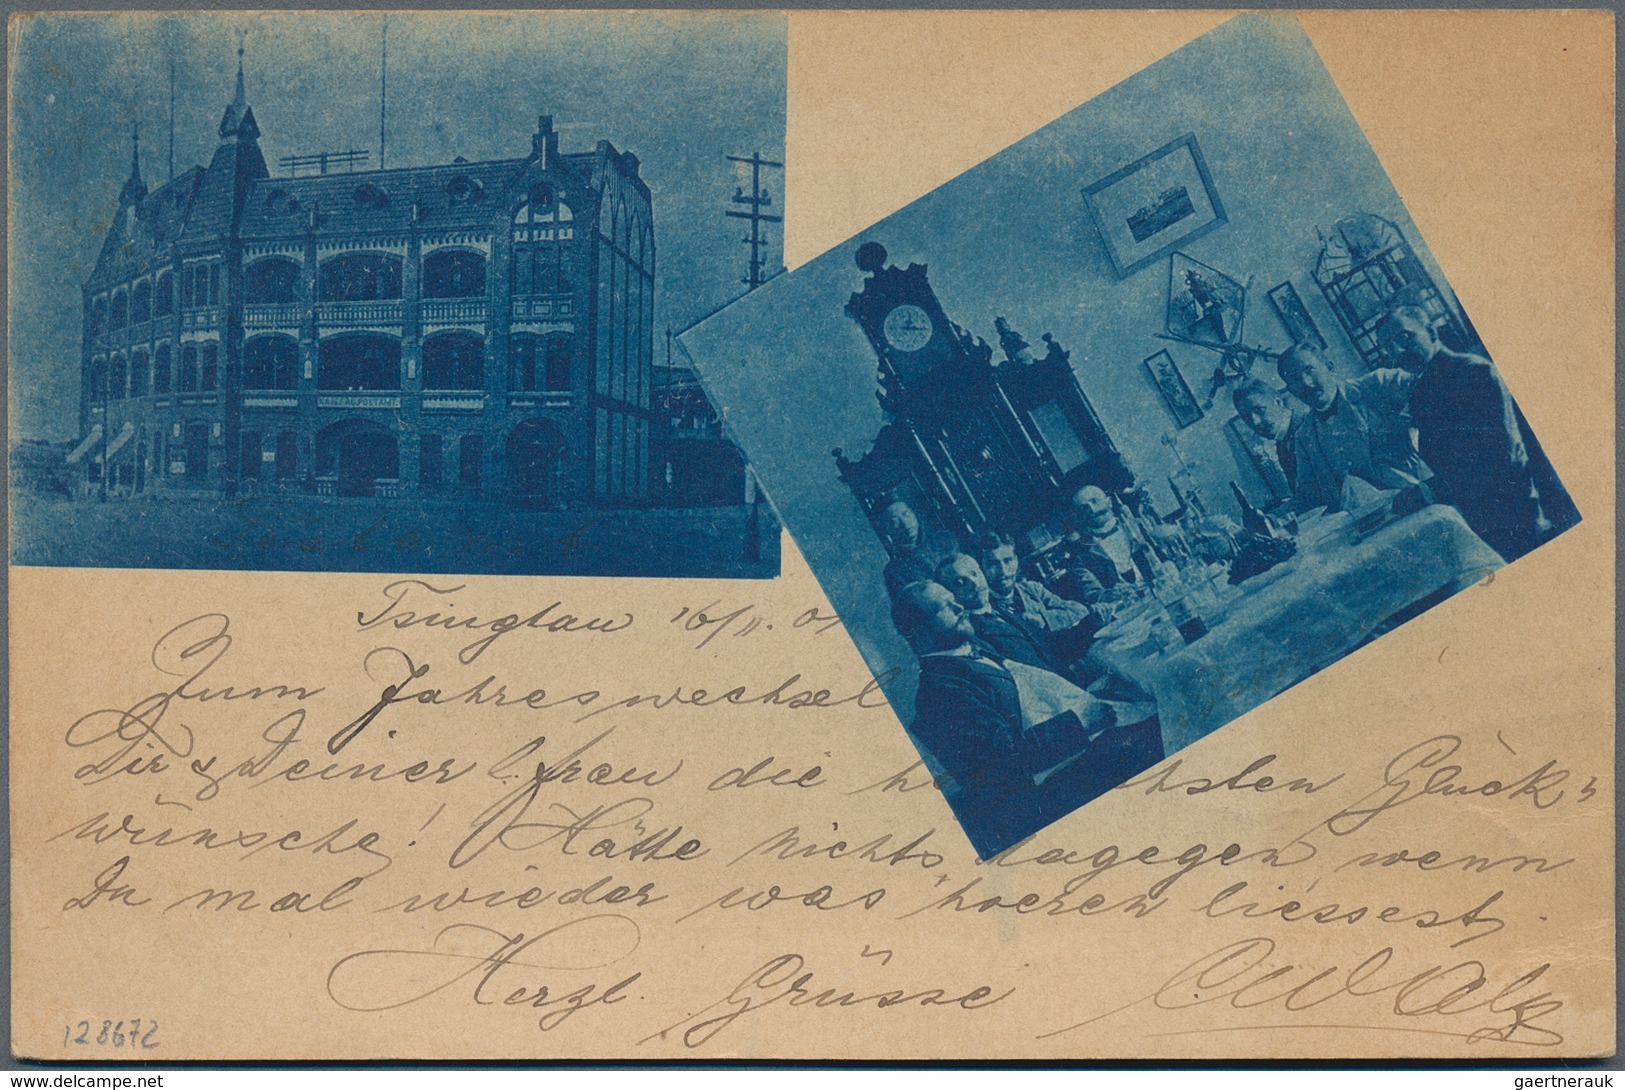 KAISERL. POSTAMT.
Tsingtau 16/11. 01
Zum Jahreswechsel
Dir & Deiner l. frau die herzlichsten Glück-
wünsche! Hätte Nichts dagegen, wenn
Du mal wieder was hoeren liessest.
Herzl. Grüsse
128672
© delcampe.net
gaertnerauk